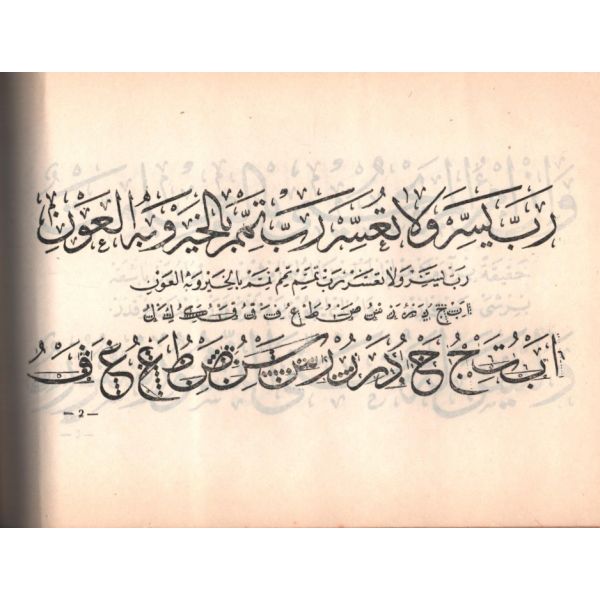 رَبِّ يَسِّرْ وَلَا تُعَسِّرْ رَبِّ تَمِّمْ بِالْخَيْرِ وَبِهِ الْعَوْنُ
رب يسر ولا تعسر رب تمم تمم تمم بالخير وبه العون
ا ب ت ج د ر ز س ص ط ع ف ق ك ل
ا ب ت ج ح د ر ز س ش ص ض ط ع غ ف
— 2 —